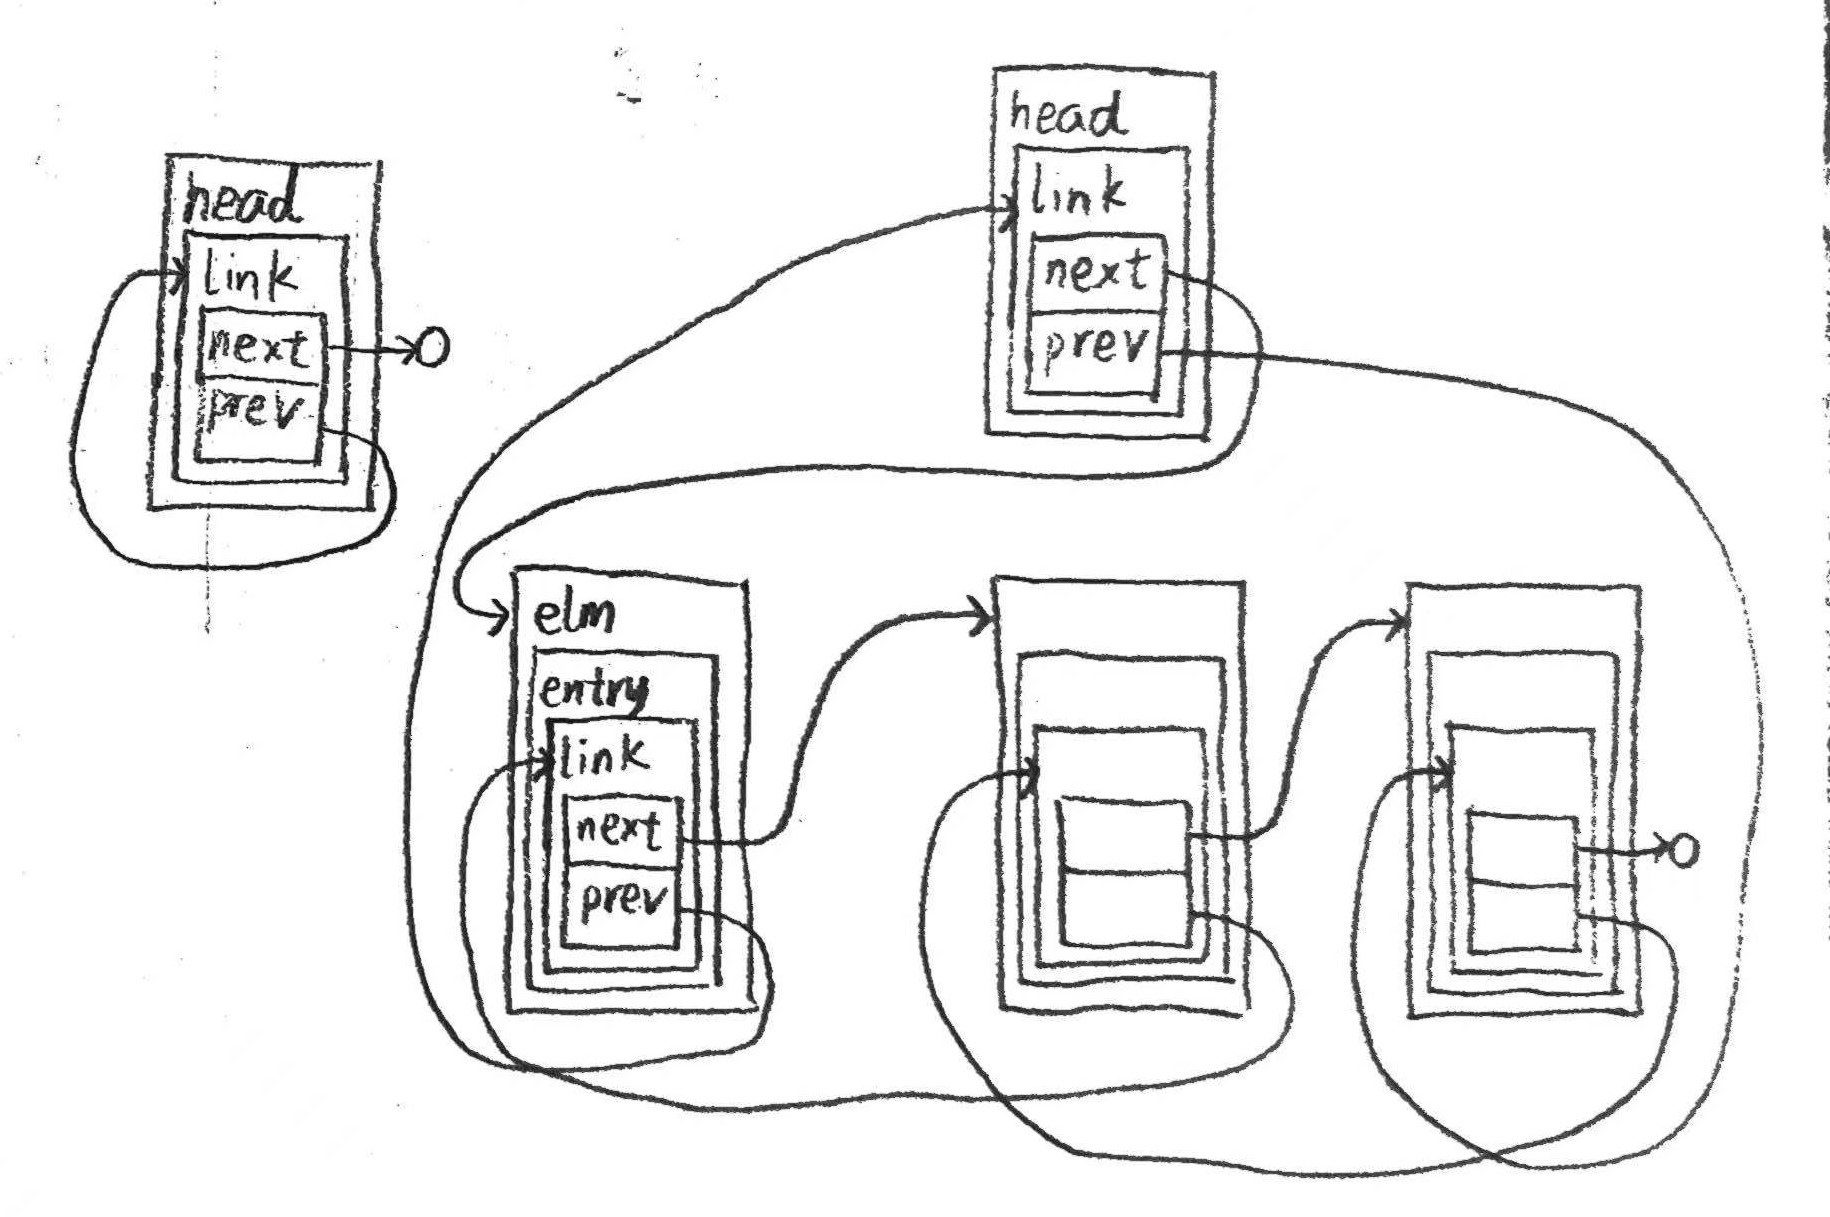 head
link
next
prev
head
link
next
prev
elm
entry
link
next
prev